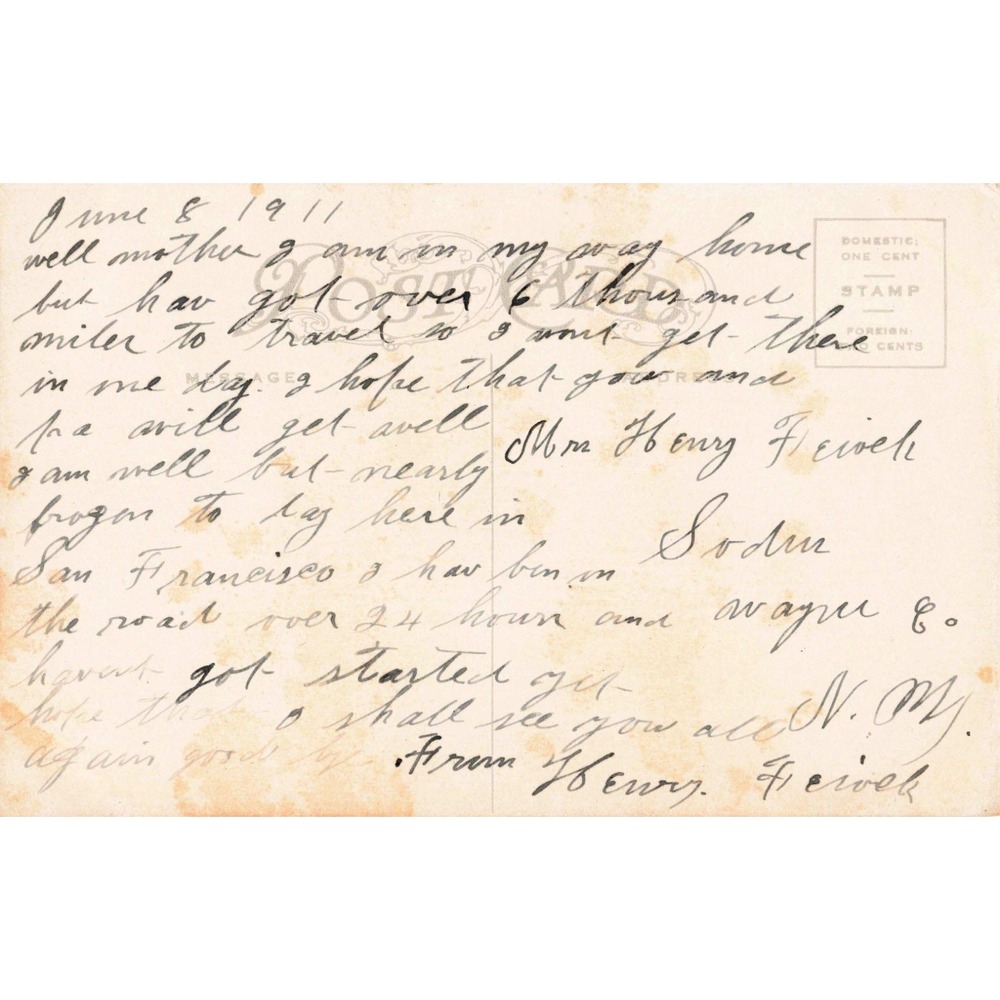 June 8 1911
well mother I am in my way home
but hav got over 6 thousand
miles to travel so I wont get there
in one day. I hope that you and
pa will get well
I am well but nearly
frozen to day here in
San Francisco I hav ben on
the road over 24 hours and
havent got started yet
hope that I shall see you all
again good by
From
Henry.
POST CARD
MESSAGE
ADDRESS
DOMESTIC:
ONE CENT
STAMP
FOREIGN:
TWO CENTS
Mrs Henry
Sodus
Wayne Co
N. Y.